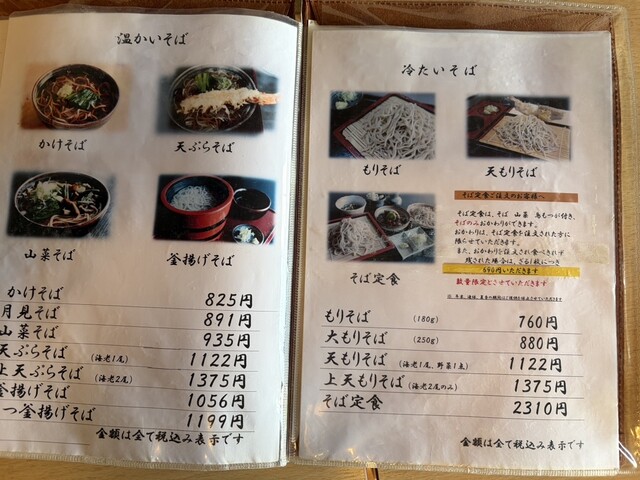 温かいそば
かけそば
天ぷらそば
山菜そば
釜揚げそば
かけそば 825円
月見そば 891円
山菜そば 935円
天ぷらそば (海老1尾) 1122円
上天ぷらそば (海老2尾) 1375円
釜揚げそば 1056円
つ釜揚げそば 1199円
金額は全て税込み表示です
冷たいそば
もりそば
天もりそば
そば定食
そば定食ご注文のお客様へ
そば定食は、そば 山菜 鳥もつが付き、
そばのみおかわりができます。
おかわりは、そば定食を注文された方に
限らせていただきます。
また、おかわりを注文され食べきれず
残された場合は、ざる1枚につき
690円いただきます
数量限定とさせていただきます
もりそば (180g) 760円
大もりそば (250g) 880円
天もりそば (海老1尾、野菜1点) 1122円
上天もりそば (海老2尾のみ) 1375円
そば定食 2310円
金額は全て税込み表示です